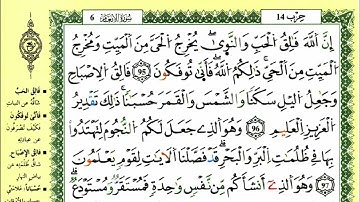 حزب 14
سُورَةُ الأَنْعَام 6
إِنَّ اَللَّهَ فَالِقُ اُلْحَبِّ وَالنَّوَىٰ يُخْرِجُ اُلْحَيَّ مِنَ اَلْمَيِّتِ وَمُخْرِجُ
اُلْمَيِّتِ مِنَ اَلْحَيِّ ذَٰلِكُمُ اُللَّهُ فَأَنَّىٰ تُوفَكُونَ 95 فَالِقُ اُلْإِصْبَاحِ
وَجَٰعِلُ اُليْلِ سَكَناً وَالشَّمْسَ وَالْقَمَرَ حُسْبَٰناً ذَٰلِكَ تَقْدِيرُ
اُلْعَزِيزِ اِلْعَلِيمِ 96 وَهُوَ اَلذِے جَعَلَ لَكُمُ اُلنُّجُومَ لِتَهْتَدُواْ
بِهَا فِے ظُلُمَٰتِ اِلْبَرِّ وَالْبَحْرِ قَدْ فَصَّلْنَا اَلْأَيَٰتِ لِقَوْمٍ يَعْلَمُونَ
97 وَهُوَ اَلذِے أَنشَأَكُم مِّن نَّفْسٍ وَٰحِدَةٍ فَمُسْتَقَرٌّ وَمُسْتَوْدَعٌ
فَالِقُ الحَبِّ
شَاقُّهُ عن النبات
فَأَنَّى تُوفَكُونَ
فكيف تُصْرَفُونَ
عن عبادته
فَالِقُ الإِصْبَاحِ
شاقُّ ظُلْمَتِهِ عن
بياض النهار